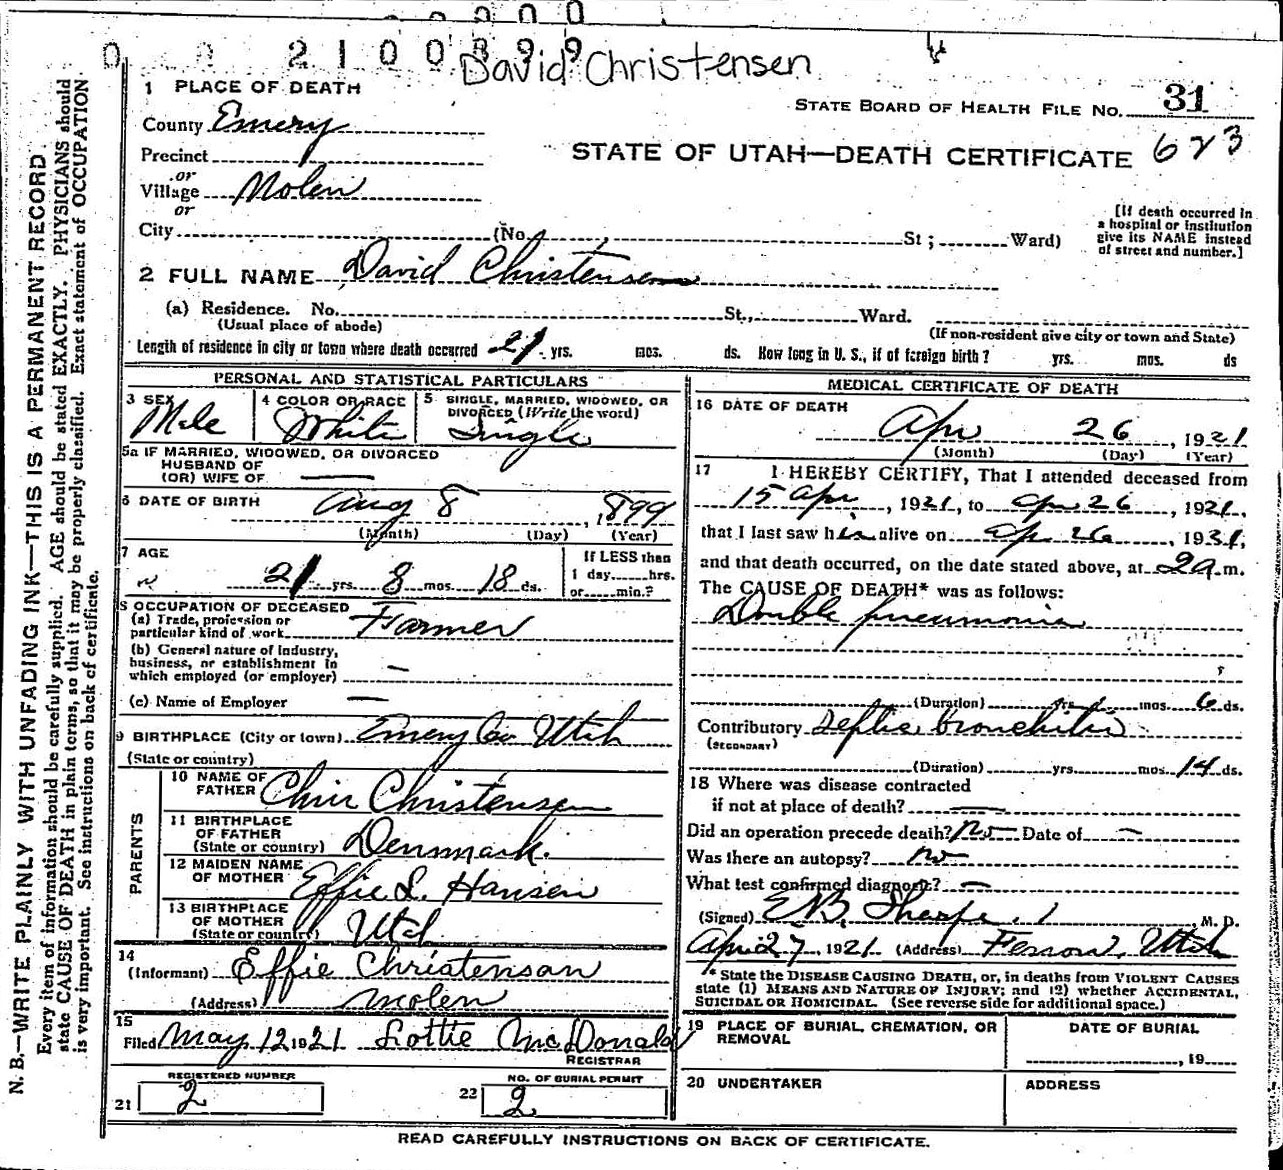 0 0 2 1 0 0 8 9 9
David Christensen
1 PLACE OF DEATH
STATE BOARD OF HEALTH FILE NO. 31
County Emery
STATE OF UTAH—DEATH CERTIFICATE 623
Precinct
or
Village Molen
or
City (No. St; Ward)
[If death occurred in
a hospital or institution
give its NAME instead
of street and number.]
2 FULL NAME David Christensen
(a) Residence. No. St., Ward.
(Usual place of abode) (If non-resident give city or town and State)
Length of residence in city or town where death occurred 21 yrs. mos. ds. How long in U. S., if of foreign birth? yrs. mos. ds
PERSONAL AND STATISTICAL PARTICULARS
3 SEX Male
4 COLOR OR RACE White
5 SINGLE, MARRIED, WIDOWED, OR
DIVORCED (Write the word)
Single
5a IF MARRIED, WIDOWED, OR DIVORCED
HUSBAND OF
(OR) WIFE OF —
6 DATE OF BIRTH Aug 8, 1899
(Month) (Day) (Year)
7 AGE
21 yrs. 8 mos. 18 ds.
If LESS than
1 day hrs.
or min.?
8 OCCUPATION OF DECEASED
(a) Trade, profession or
particular kind of work Farmer
(b) General nature of Industry,
business, or establishment in
which employed (or employer) —
(c) Name of Employer —
9 BIRTHPLACE (City or town) Emery Co Utah
(State or country)
PARENTS
10 NAME OF
FATHER Chris Christensen
11 BIRTHPLACE
OF FATHER
(State or country) Denmark.
12 MAIDEN NAME
OF MOTHER Effie L. Hansen
13 BIRTHPLACE
OF MOTHER
(State or country) Utah
14
(Informant) Effie Christenson
(Address) Molen
15
Filed May 12 1921 Lottie McDonald
REGISTRAR
REGISTERED NUMBER
21 2
NO. OF BURIAL PERMIT
22 2
MEDICAL CERTIFICATE OF DEATH
16 DATE OF DEATH
Apr 26, 1921
(Month) (Day) (Year)
17 I HEREBY CERTIFY, That I attended deceased from
15 apr, 1921, to apr 26, 1921,
that I last saw him alive on apr 26, 1921,
and that death occurred, on the date stated above, at 2a m.
The CAUSE OF DEATH* was as follows:
Double pneumonia
(Duration) yrs. mos. 6 ds.
Contributory Septic bronchitis
(SECONDARY)
(Duration) yrs. mos. 14 ds.
18 Where was disease contracted
if not at place of death? —
Did an operation precede death? No Date of —
Was there an autopsy? no
What test confirmed diagnosis? —
(Signed) E. B. Sharpe. M. D.
Apr 27, 1921 (Address) Ferron, Utah
* State the DISEASE CAUSING DEATH, or, in deaths from VIOLENT CAUSES
state (1) MEANS AND NATURE OF INJURY; and (2) whether ACCIDENTAL,
SUICIDAL OR HOMICIDAL. (See reverse side for additional space.)
19 PLACE OF BURIAL, CREMATION, OR
REMOVAL
DATE OF BURIAL
, 19
20 UNDERTAKER
ADDRESS
READ CAREFULLY INSTRUCTIONS ON BACK OF CERTIFICATE.
N. B.—WRITE PLAINLY WITH UNFADING INK—THIS IS A PERMANENT RECORD.
Every item of information should be carefully supplied. AGE should be stated EXACTLY. PHYSICIANS should
state CAUSE OF DEATH in plain terms, so that it may be properly classified. Exact statement of OCCUPATION
is very important. See instructions on back of certificate.